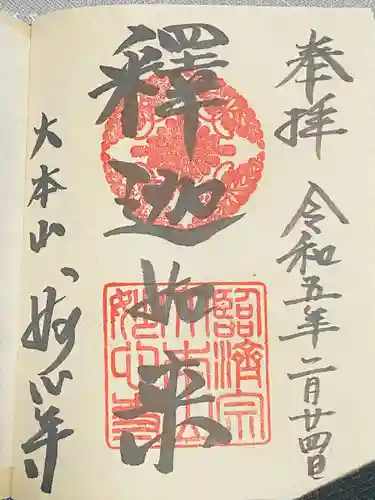 奉拝
令和五年二月廿四日
釋迦如来
臨済宗
大本山
妙心寺
大本山
妙心寺